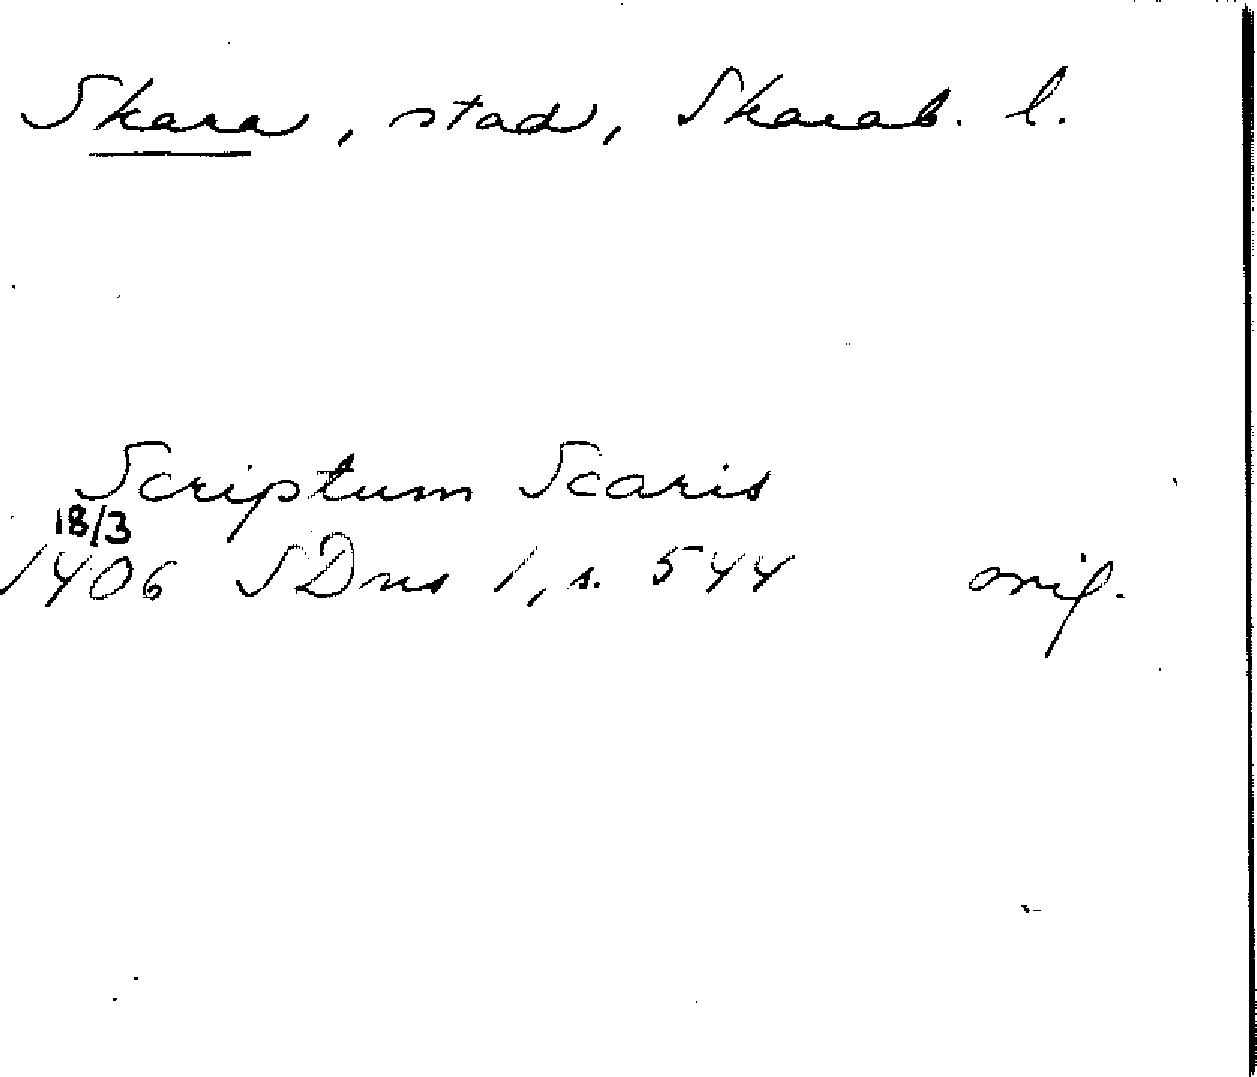 Skara, stad, Skarab. l.
Scriptum Scaris
18/3
1406 SDns 1, s. 544 orig.